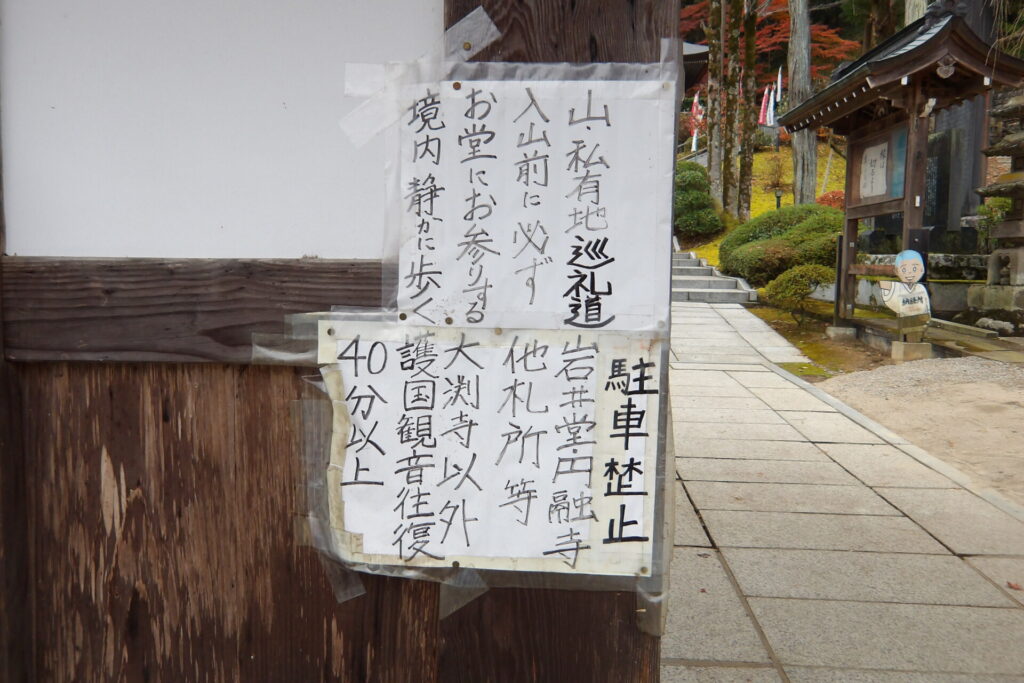 山・私有地巡礼道
入山前に必ず
お堂にお参りする
境内静かに歩く
駐車禁止
岩井堂・円融寺
他札所等
大渕寺以外
護国観音往復
40分以上